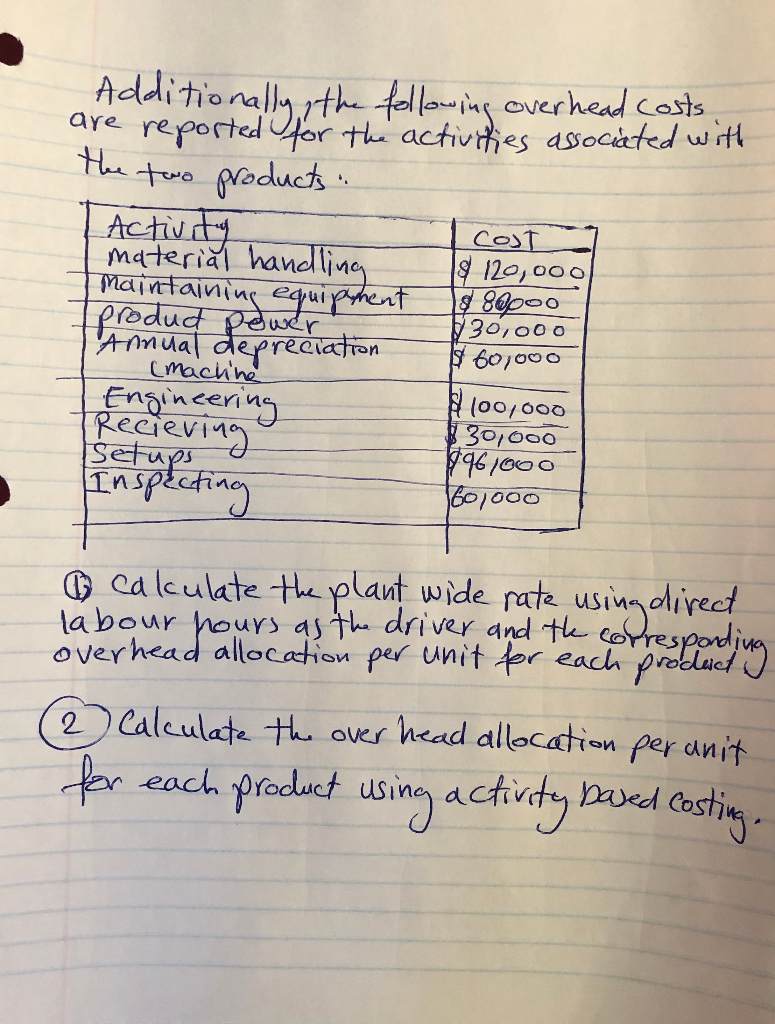 Additionally, the following overhead costs
are reported for the activities associated with
the two products:
Activity COST
material handling $ 120,000
Maintaining equipment $ 80,000
product power $ 30,000
Annual depreciation $ 60,000
(machine
Engineering $ 100,000
Recieving $ 30,000
Setups $ 96,000
Inspecting 60,000
① Calculate the plant wide rate using direct
labour hours as the driver and the corresponding
overhead allocation per unit for each product
② Calculate the over head allocation per unit
for each product using activity based costing.